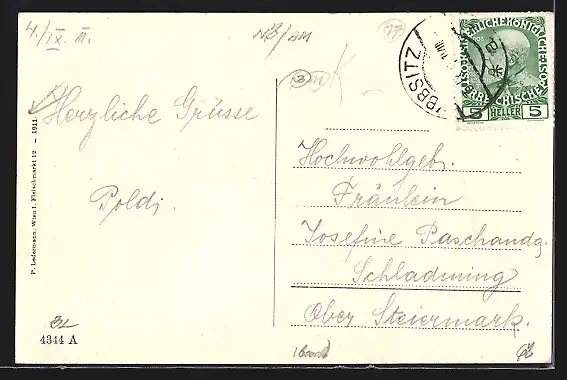 4./IX. 11.
NB/AM
YBBSITZ
KAISERLICHE KÖNIGLICHE
ÖSTERREICHISCHE POST
5 HELLER 5
Herzliche Grüsse
Poldi
P. Ledermann, Wien I. Fleischmarkt 12 – 1911
4344 A
Hochwohlgeb.
Fräulein
Josefine Paschandg.
Schladming
Ober Steiermark.